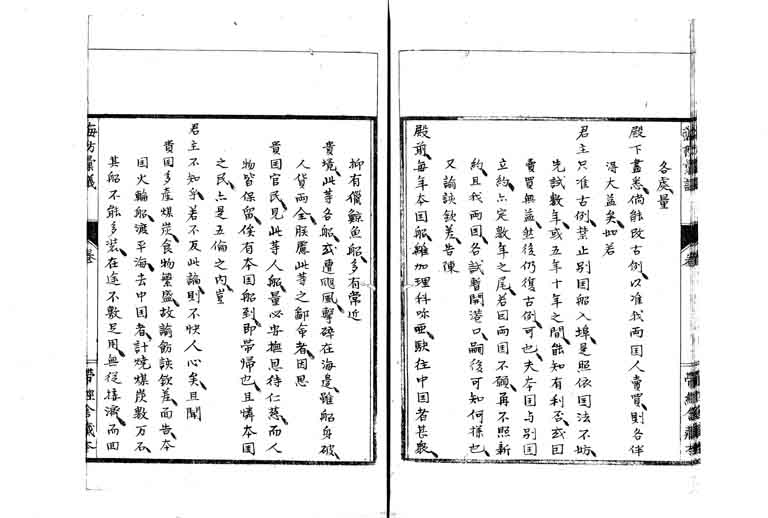 各處量
殿下盡悉倘能改古例以准我兩国人賣買則各伴
得大益矣如若
君主只准古例禁止別国船入埠是照依国法不妨
先試数年或五年十年之間能知有利否或曰
賣買無益然後仍復古例可也夫本国与別国
立約亦定数年之尾若因兩国不願再不照新
約且我两国各試暫開港口嗣後可知何樣也
又諭該欽差告陳
殿前每年本国船離加理科呢亜駛往中国者甚衆
抑有儎鯨魚船多有常近
貴境此等各船或遭飓風擊碎在海邊雖船身破
人貨两全朕慮此等之鄙命者因思
貴国官民見此等人船量必安撫恩待仁慈而人
物皆保留俟有本国船到即帶帰也且憐本国
之民亦是五倫之内豈
君主不知乎若不及此諭則不快人心矣且聞
貴国多產煤炭食物繁盛故諭飭該欽差而告本
国火輪船渡平海去中国者計燒煤炭数万石
其船不能多装在途不敷足用無從接濟而回
海防彙議
卷
帶經舍藏本